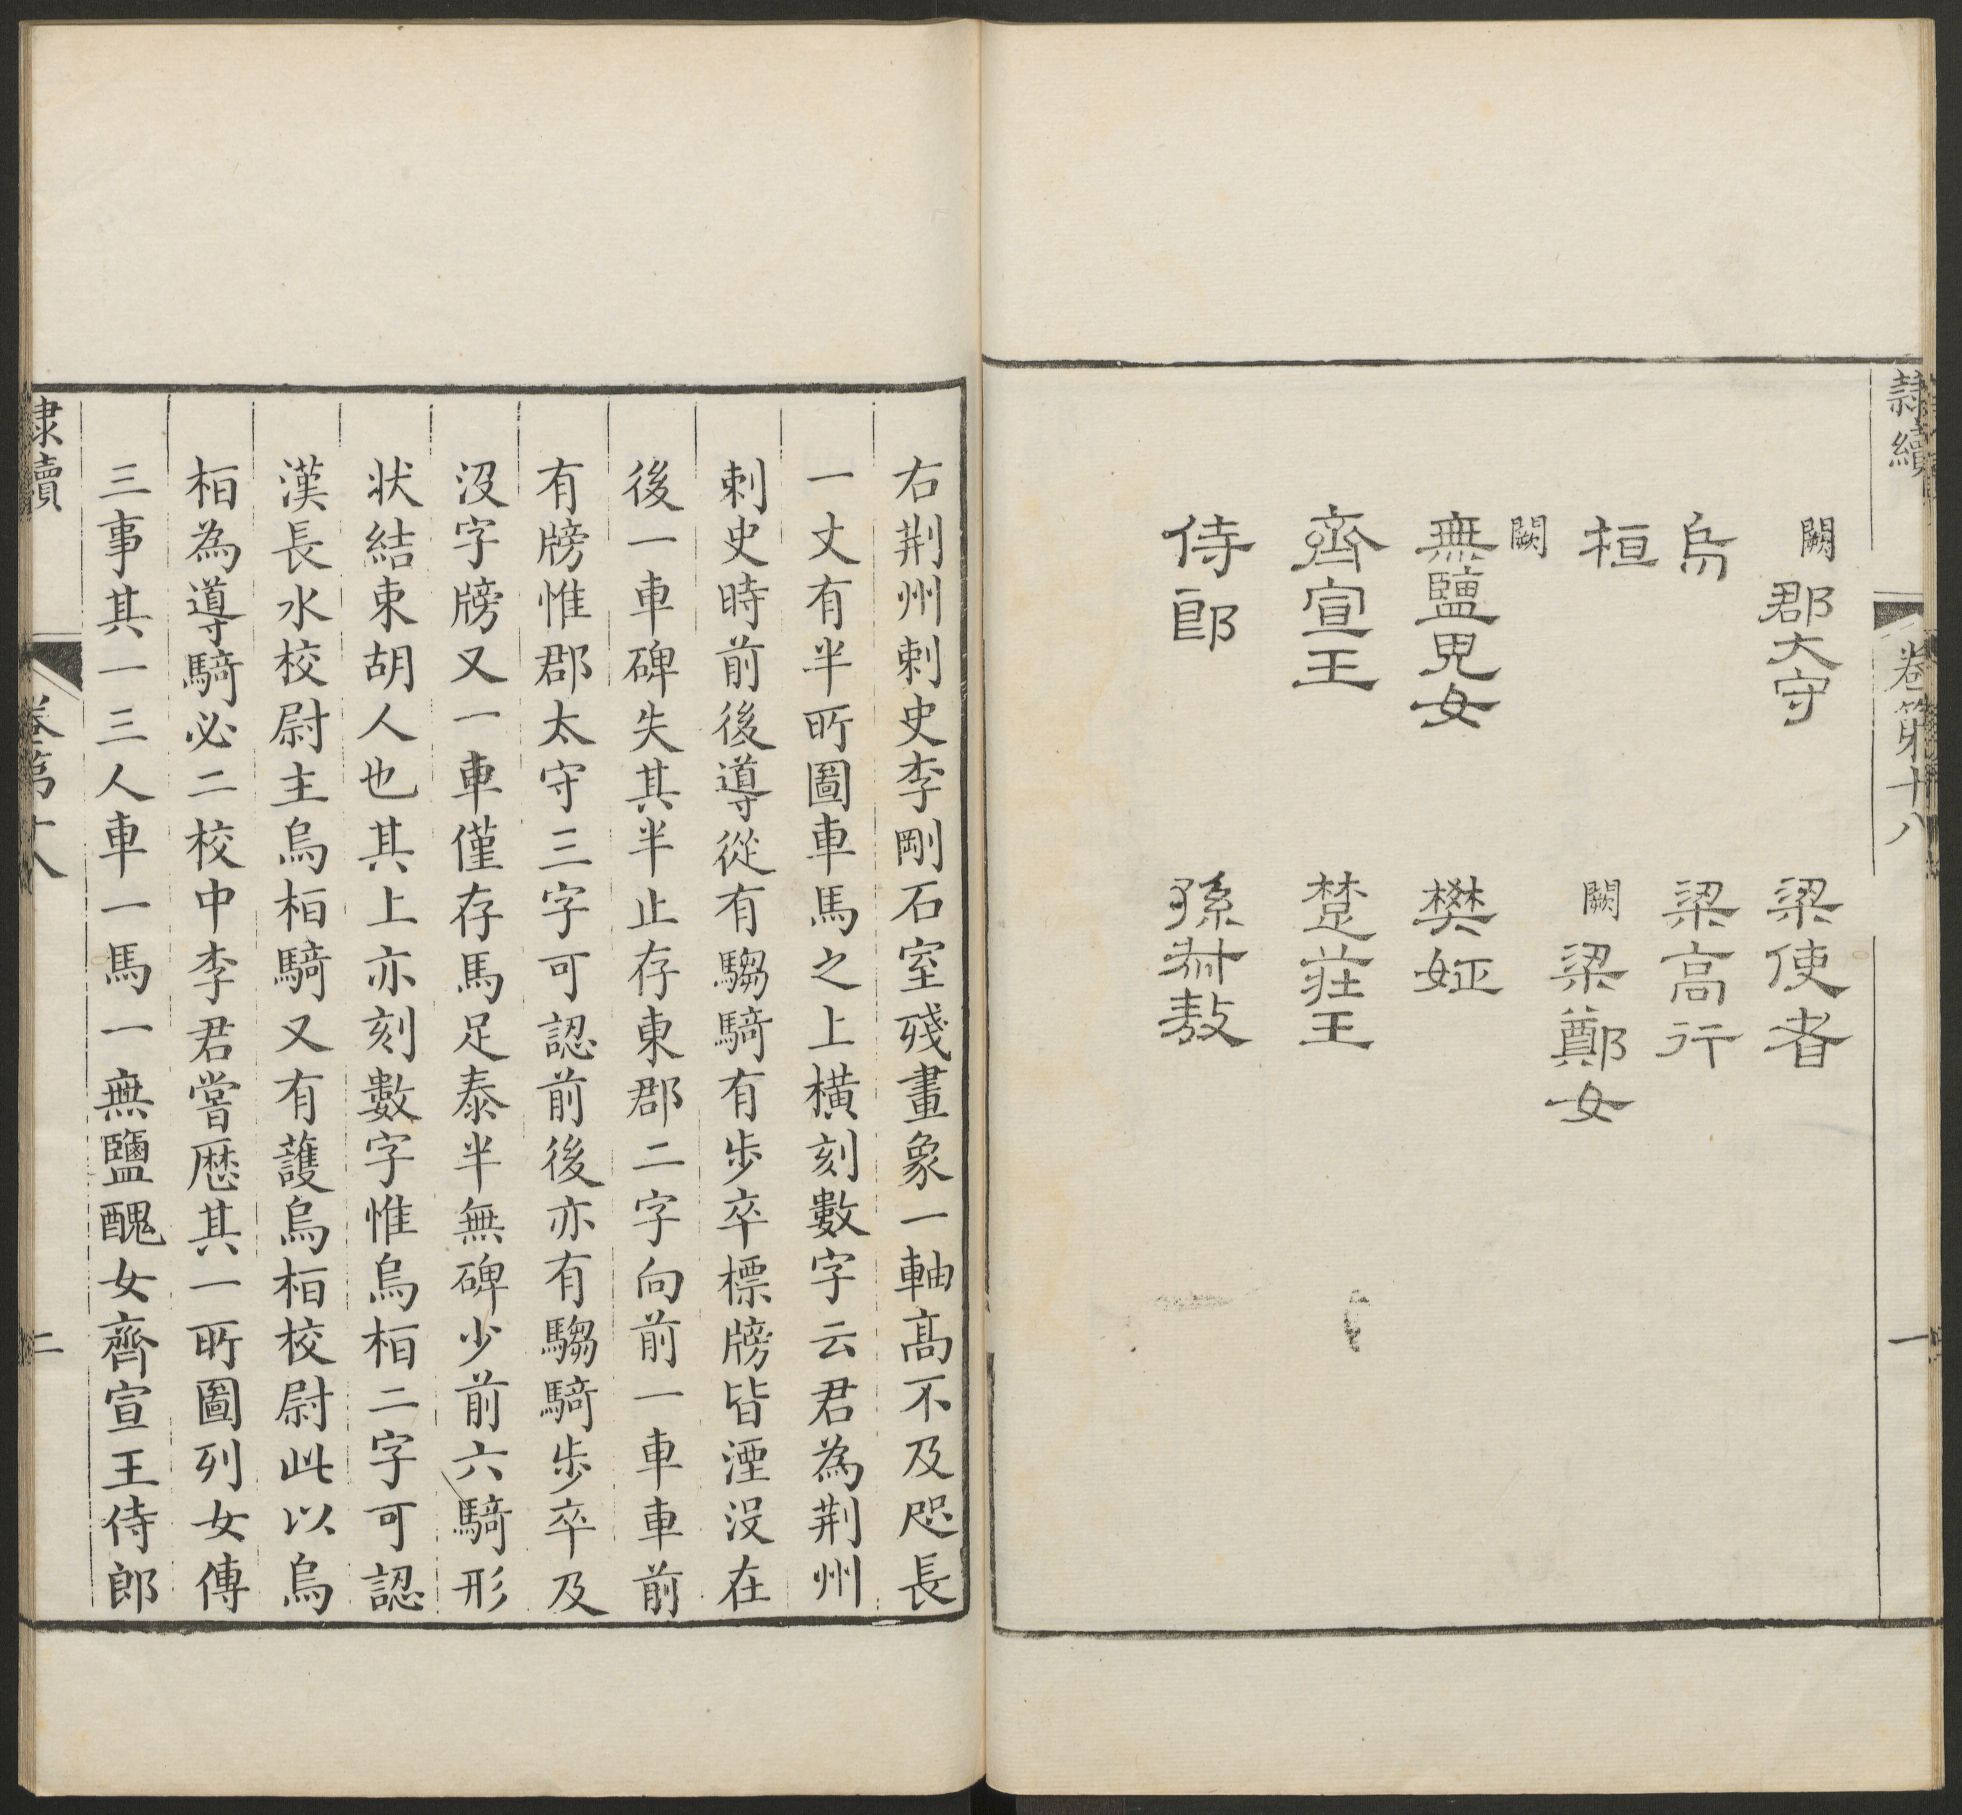 隸續
卷第十八
一
闕郡大守
梁使者
烏
梁高行
桓
闕梁鄭女
闕
無鹽
女
樊姬
齊宣王
楚莊王
侍郎
孫叔敖
右荆州刺史李剛石室殘畫象一軸高不及咫長
一丈有半所圖車馬之上橫刻數字云君為荆州
刺史時前後導從有騶騎有步卒標牓皆湮没在
後一車碑失其半止存東郡二字向前一車車前
有牓惟郡太守三字可認前後亦有騶騎步卒及
没字牓又一車僅存馬足泰半無碑少前六騎形
状結束胡人也其上亦刻數字惟烏桓二字可認
漢長水校尉主烏桓騎又有護烏桓校尉此以烏
桓為導騎必二校中李君嘗歷其一所圖列女傳
三事其一三人車一馬一無鹽醜女齊宣王侍郎
隸續
卷第十八
二